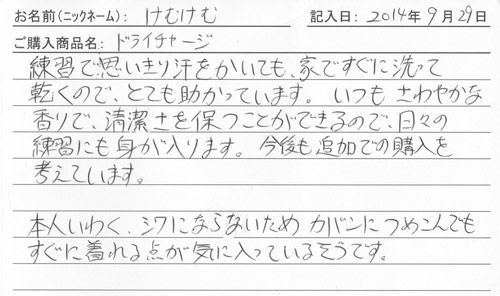 お名前(ニックネーム): けむけむ 記入日: 2014年9月29日
ご購入商品名: ドライチャージ
練習で思いきり汗をかいても、家ですぐに洗って
乾くので、とても助かっています。いつもさわやかな
香りで、清潔さを保つことができるので、日々の
練習にも身が入ります。今後も追加での購入を
考えています。
本人いわく、シワにならないためカバンにつめこんでも
すぐに着れる点が気に入っているそうです。